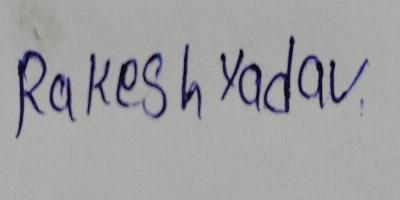 Rakesh Yadav.